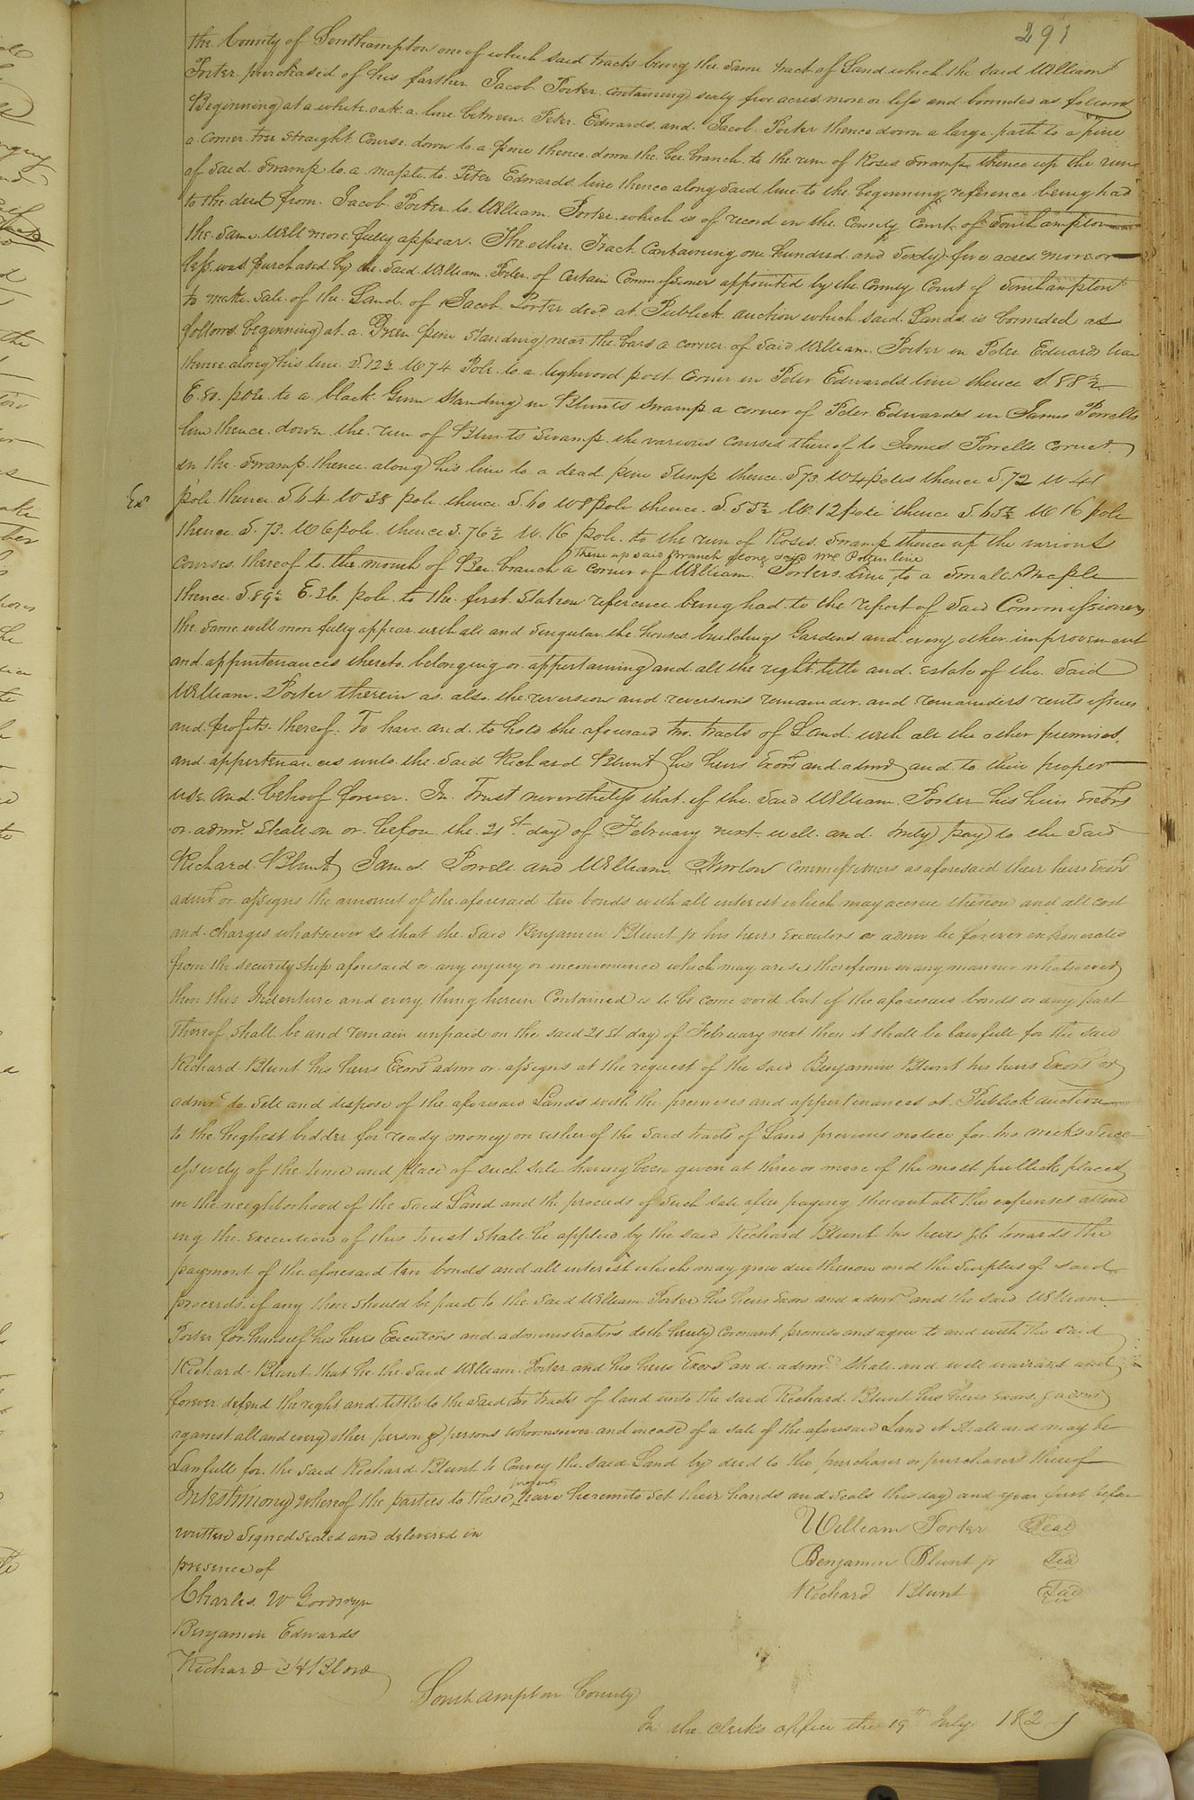 291
the County of Southampton one of which said tracts being the same tract of Land which the said William
Porter purchased of his farther Jacob Porter containing sixty five acres more or less and bounded as follows
Beginning at a white oak a line between Peter Edwards and Jacob Porter thence down a large path to a pine
a corner tree straight Course down to a pine thence down the bee branch to the run of Roses Swamp thence up the run
of said Swamp to a maple to Peter Edwards line thence along said line to the beginning reference being had
to the deed from Jacob Porter to William Porter which is of record in the County Court of Southampton
the same will more fully appear. The other Tract Containing one hundred and sixty five acres more or
less was purchased by the said William Porter of Certain Commissioners appointed by the County Court of Southampton
to make sale of the Land of Jacob Porter decd at Publick auction which said Lands is bounded as
follows beginning at a Green pine standing near the bars a corner of said William Porter in Peter Edwards line
thence along his line S 12½ W 74 Pole to a lightwood post corner in Peter Edwards line thence S 88½
E 80 pole to a black Gum standing in Blunts swamp a corner of Peter Edwards in James Powells
line thence down the run of Blunts Swamp the various courses thereof to James Powells corner
in the Swamp thence along his line to a dead pine stump thence S 73 W 4 poles thence S 72 W 41
pole thence S 64 W 38 pole thence S. 60 W 8 pole thence S. 55½ W. 12 pole thence S 65½ W 16 pole
thence S. 73. W 6 pole thence S. 76½ W. 16 pole to the run of Roses Swamp thence up the various
Thence up said Branch along said Wm Porters line
courses thereof to the mouth of Bee branch a corner of William Porters line to a small Maple
thence S. 89½ E. 36 pole to the first station reference being had to the report of said Commissioners
the same will more fully appear with all and singular the houses buildings Gardens and every other improvement
and appurtenances thereto belonging or appertaining and all the right title and estate of the said
William Porter therein as also the reversion and reversions remainder and remainders rents issues
and profits thereof. To have and to hold the aforesaid two tracts of Land with all the other premises
and appertenances unto the said Richard Blunt his heirs Exors and admrs and to their proper
use and behoof forever. In Trust nevertheless that if the said William Porter his heirs exors
or admrs shall on or before the 21st day of February next well and truly pay to the said
Richard Blunt James Powell and William Newton commissioners as aforesaid their heirs Exors
admrs or assigns the amount of the aforesaid two bonds with all interest which may accrue thereon and all cost
and charges whatsoever so that the said Benjamin Blunt jr his heirs Executors or admrs be forever exhonerated
from the securityship aforesaid or any injury or inconvenience which may arise therefrom in any manner whatsoever
then this Indenture and every thing herein Contained is to become void but if the aforesaid bonds or any part
thereof shall be and remain unpaid on the said 21st day of February next then it shall be lawfull for the said
Richard Blunt his heirs Exors admrs or assigns at the request of the said Benjamin Blunt his heirs Exors or
admrs to sell and dispose of the aforesaid Lands with the premises and appertenances at Publick auction
to the highest bidder for ready money on either of the said tracts of Land previous notice for two weeks succe
essively of the time and place of such sale having been given at three or more of the most publick places
in the neighborhood of the said Land and the proceeds of such sale after paying thereout all the expenses attend
ing the execution of this trust shall be applied by the said Richard Blunt his heirs &c towards the
payment of the aforesaid two bonds and all interest which may grow due thereon and the surplus of said
proceeds if any there should be paid to the said William Porter his heirs Exors and admrs and the said William
Porter for himself his heirs Executors and administrators doth hereby Covenant promise and agree to and with the said
Richard Blunt that he the said William Porter and his heirs Exors and admrs shall and will warrant and
forever defend the right and tittle to the said two tracts of land unto the said Richard Blunt his heirs Exors & admrs
against all and every other person & persons whomsoever and in case of a sale of the aforesaid Land it shall and may be
Lawfull for the said Richard Blunt to Convey the said Land by deed to the purchaser or purchasers thereof
presents
In testimony whereof the parties to these have hereunto set their hands and seals this day and year first before
written signed sealed and delivered in
presence of
Charles W Goodwyn
Benjamin Edwards
Richard H Blow
William Porter Seal
Benjamin Blunt jr Seal
Richard Blunt Seal
Southampton County
In the clerks office the 19th July 182